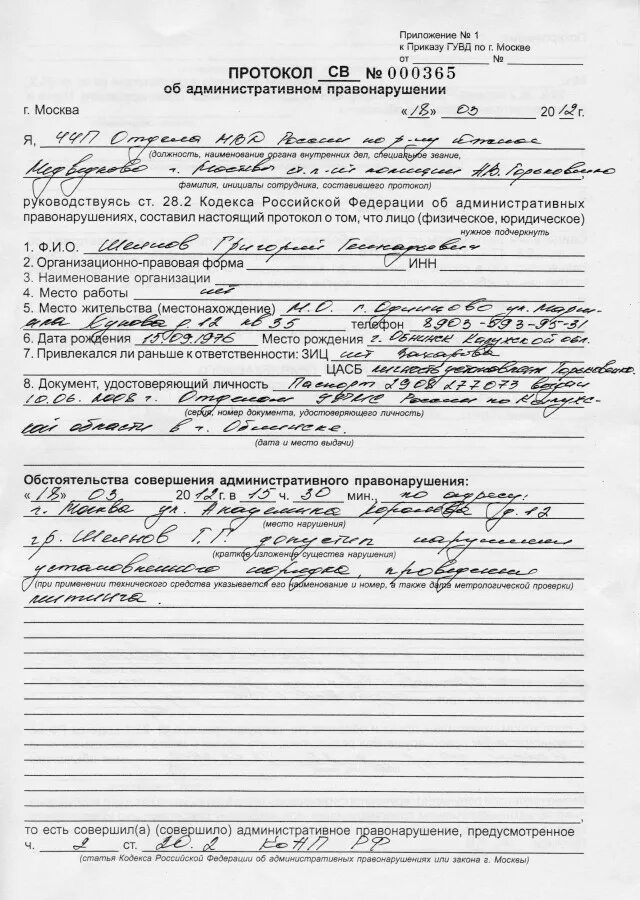 Приложение № 1
к Приказу ГУВД по г. Москве
от № 
ПРОТОКОЛ СВ № 000365
об административном правонарушении
г. Москва «18» 03 2012 г.
Я, Отдела МВД России по р-ну Южное
Медведково г. Москвы ст. л-т полиции
(должность, наименование органа внутренних дел, специальное звание,
фамилия, инициалы сотрудника, составившего протокол)
руководствуясь ст. 28.2 Кодекса Российской Федерации об административных
правонарушениях, составил настоящий протокол о том, что лицо (физическое, юридическое)
нужное подчеркнуть
1. Ф.И.О. Григорий Геннадьевич
2. Организационно-правовая форма ИНН
3. Наименование организации
4. Место работы нет
5. Место жительства (местонахождение) М.О. г. Одинцово ул. Марш-
ала Жукова д. 12 кв 35 телефон 8903-593-95-31
6. Дата рождения 15.09.1976 Место рождения г. Обнинск Калужской обл.
7. Привлекался ли раньше к ответственности: ЗИЦ нет Захарова
ЦАСБ личность установлена
8. Документ, удостоверяющий личность Паспорт 2908 277073 выдан
10.06.2008 г. Отделом УФМС России по Калужс-
(серия, номер документа, удостоверяющего личность)
кой области в г. Обнинске.
(дата и место выдачи)
Обстоятельства совершения административного правонарушения:
«18» 03 2012 г. в 15 ч. 30 мин., по адресу:
г. Москва ул. Академика Королева д. 12
(место нарушения)
гр. Г.Г. допустил нарушение
(краткое изложение существа нарушения)
установленного порядка, проведения
(при применении технического средства указывается его наименование и номер, а также дата метрологической проверки)
митинга.
то есть совершил(а) (совершило) административное правонарушение, предусмотренное
ч. 2 ст. 20.2 КоАП РФ
(статья Кодекса Российской Федерации об административных правонарушениях или закона г. Москвы)